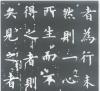 者為行未
然則一心
所生而滅
得之者則
失見之者